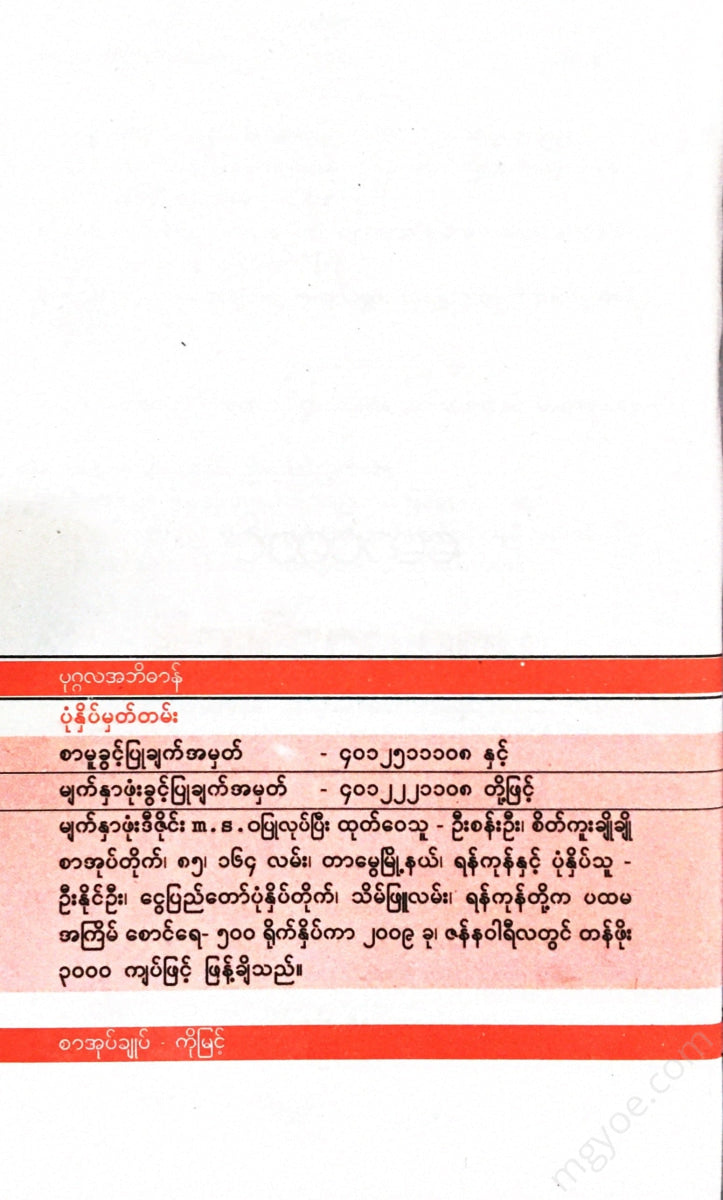 ပုဂ္ဂလအဘိဓာန်
ပုံနှိပ်မှတ်တမ်း
စာမူခွင့်ပြုချက်အမှတ် - ၄၀၁၂၅၁၁၁၀၈ နှင့်
မျက်နှာဖုံးခွင့်ပြုချက်အမှတ် - ၄၀၁၂၂၂၁၁၀၈ တို့ဖြင့်
မျက်နှာဖုံးဒီဇိုင်း m.s.ဝပြုလုပ်ပြီး ထုတ်ဝေသူ - ဦးစန်းဦး၊ စိတ်ကူးချိုချို
စာအုပ်တိုက်၊ ၈၅၊ ၁၆၄ လမ်း၊ တာမွေမြို့နယ်၊ ရန်ကုန်နှင့် ပုံနှိပ်သူ -
ဦးနိုင်ဦး၊ ငွေပြည်တော်ပုံနှိပ်တိုက်၊ သိမ်ဖြူလမ်း၊ ရန်ကုန်တို့က ပထမ
အကြိမ် စောင်ရေ- ၅၀၀ ရိုက်နှိပ်ကာ ၂၀၀၉ ခု၊ ဇန်နဝါရီလတွင် တန်ဖိုး
၃၀၀၀ ကျပ်ဖြင့် ဖြန့်ချိသည်။
စာအုပ်ချုပ် - ကိုမြင့်
mgyoe.com